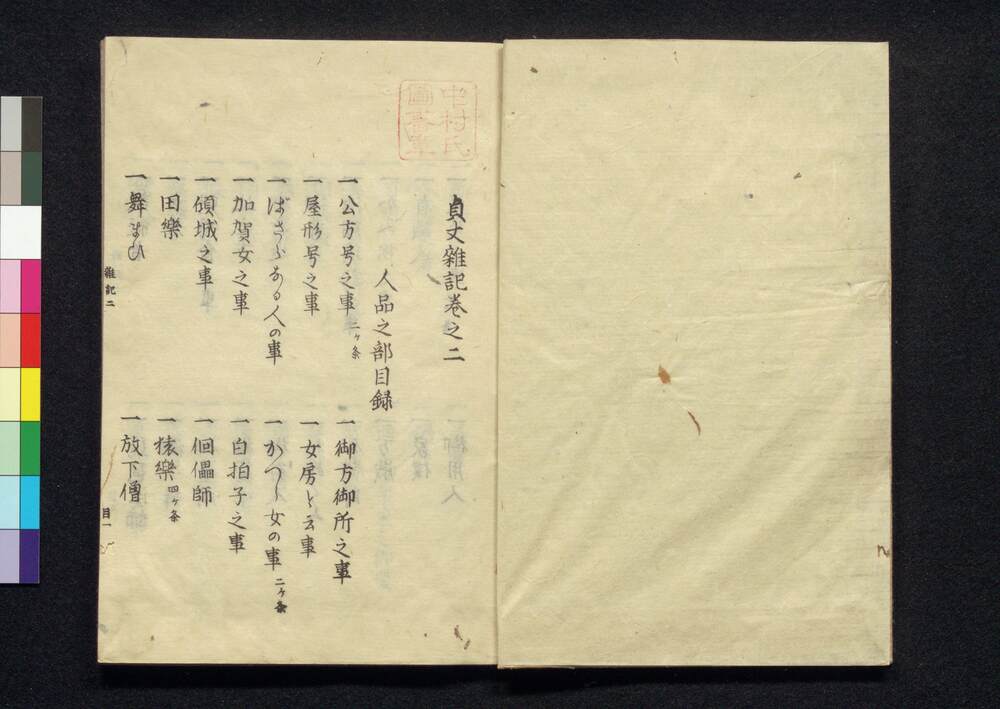 貞丈雜記巻之二
人品之部目録
一公方号之事 二ヶ条
一御方御所之事
一屋形号之事
一女房と云事
一ばさらある人の事
一かつら女の事 二ヶ条
一加賀女之事
一白拍子之事
一傾城之事
一佪儡師
一田樂
一猿樂 四ヶ条
一舞まひ
一放下僧
雜記二
目一
中村氏
圖書章